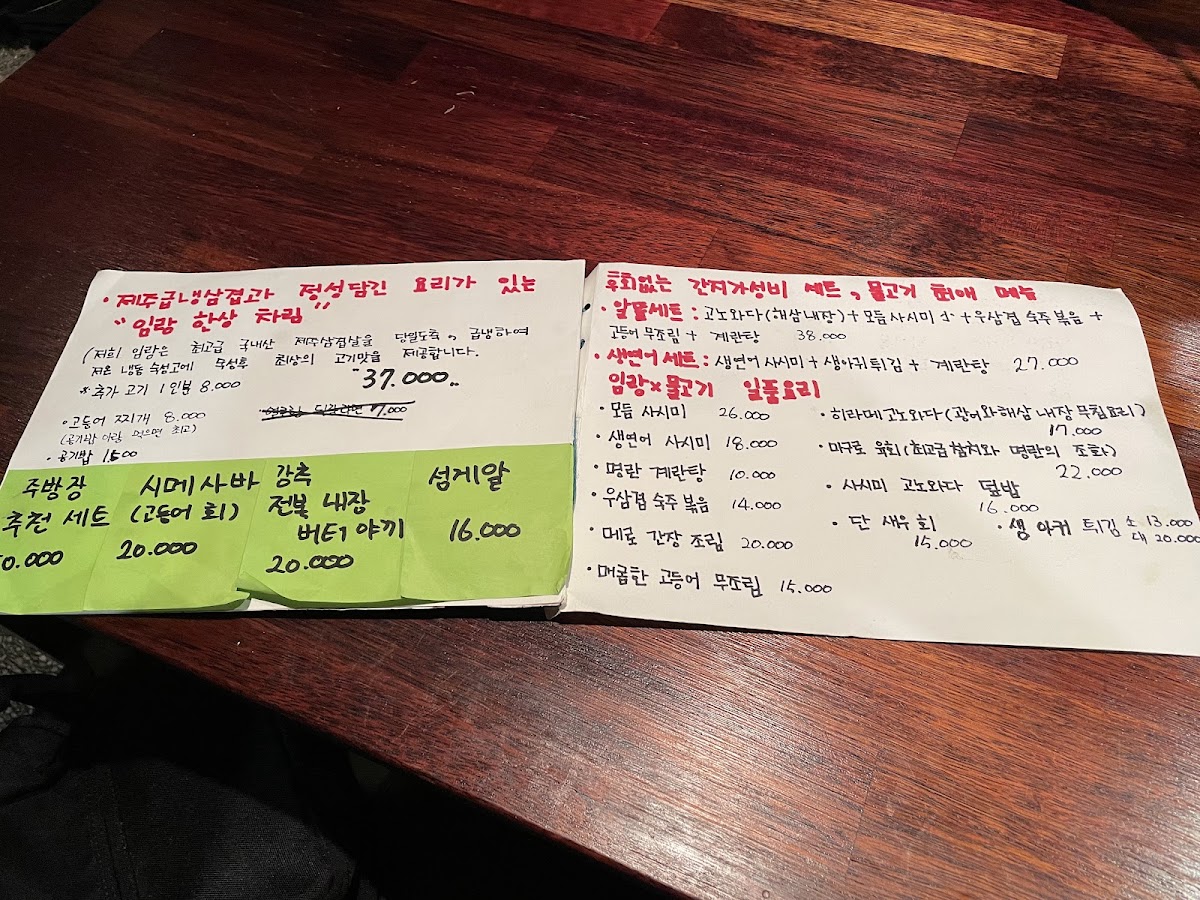 · 제주급냉삼겹과 정성담긴 요리가 있는
"임랑 한상 차림"
(저희 임랑은 최고급 국내산 제주삼겹살을 당일도축, 급냉하여
저온 냉동 숙성고에 숙성후 최상의 고기맛을 제공합니다.
"37.000"
※ 추가 고기 1인분 8.000
· 고등어 찌개 8.000
(공기밥 이랑 먹으면 최고)
7.000
· 공기밥 1.500
주방장
추천 세트
0.000
시메사바
(고등어 회)
20.000
강추
전복 내장
버터 야끼
20.000
성게알
16.000
후회없는 간지가성비 세트, 물고기 최애 메뉴
· 알뜰세트 : 고노와다(해삼내장)+모듬사시미 小+우삼겹 숙주볶음+
고등어 무조림 + 계란탕 38.000
· 생연어세트 : 생연어 사시미+생아귀튀김 + 계란탕 27.000
임랑×물고기 일품요리
· 모듬 사시미 26.000
· 생연어 사시미 18.000
· 명란 계란탕 10.000
· 우삼겹 숙주 볶음 14.000
· 메로 간장 조림 20.000
· 매콤한 고등어 무조림 15.000
· 히라메고노와다(광어와해삼 내장 무침요리)
17.000
· 마구로 육회(최고급참치와 명란의 조화)
22.000
· 사시미 고노와다 덮밥
16.000
· 단 새우회
15.000
· 생 아귀 튀김 소 13.000
대 20.000